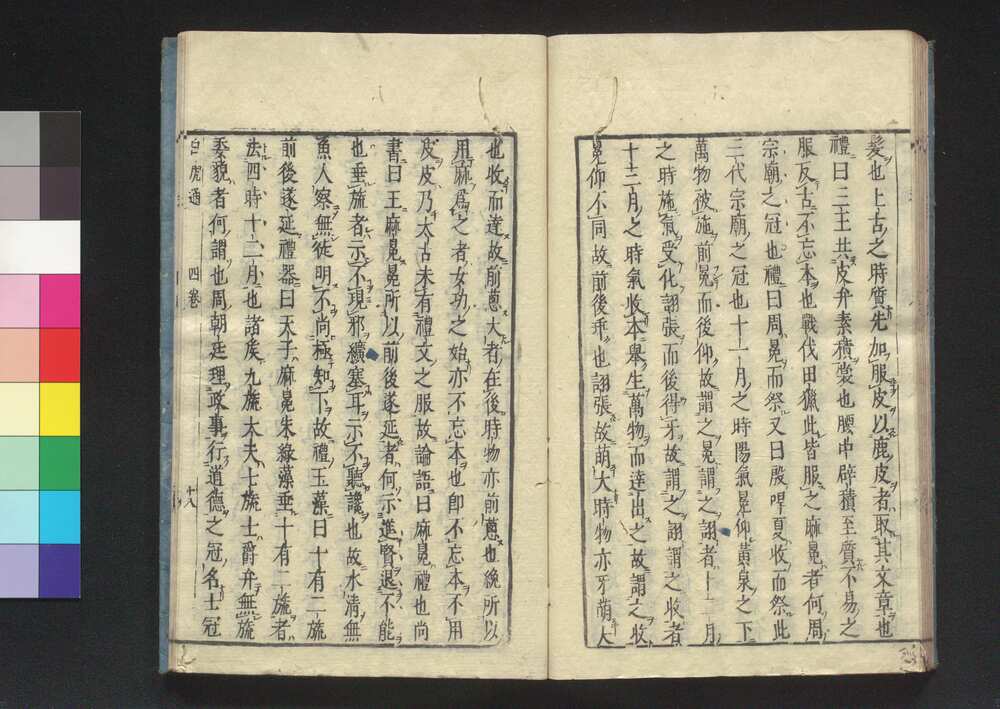 髮也上古之時質先加服皮以鹿皮者取其文章也
禮曰三王共皮弁素積裳也腰中辟積至質不易之
服反古不忘本也戰伐田獵此皆服之麻冕者何周
宗廟之冠也禮曰周冕而祭又曰殷哻夏收而祭此
三代宗廟之冠也十一月之時陽氣冕仰黃泉之下
萬物被施前冕而後仰故謂之冕謂之詡者十二月
之時施氣受化詡張而後得牙故謂之詡謂之收者
十三月之時氣收本舉生萬物而達出之故謂之收
冕仰不同故前後乖也詡張故萌大時物亦牙萌大
也收而達故前蔥大者在後時物亦前蔥也絻所以
用麻爲之者女功之始亦不忘本也卽不忘本不用
皮皮乃太古未有禮文之服故論語曰麻冕禮也尚
書曰王麻冕冕所以前後遂延者何示進賢退不能
也垂旒者示不現邪纊塞耳示不聽讒也故水清無
魚人察無徒明不尚極知下故禮玉藻曰十有二旒
前後遂延禮器曰天子麻冕朱綠藻垂十有二旒者
法四時十二月也諸矦九旒大夫七旒士爵弁無旒
委貌者何謂也周朝廷理政事行道德之冠名士冠
白虎通 四卷 十八